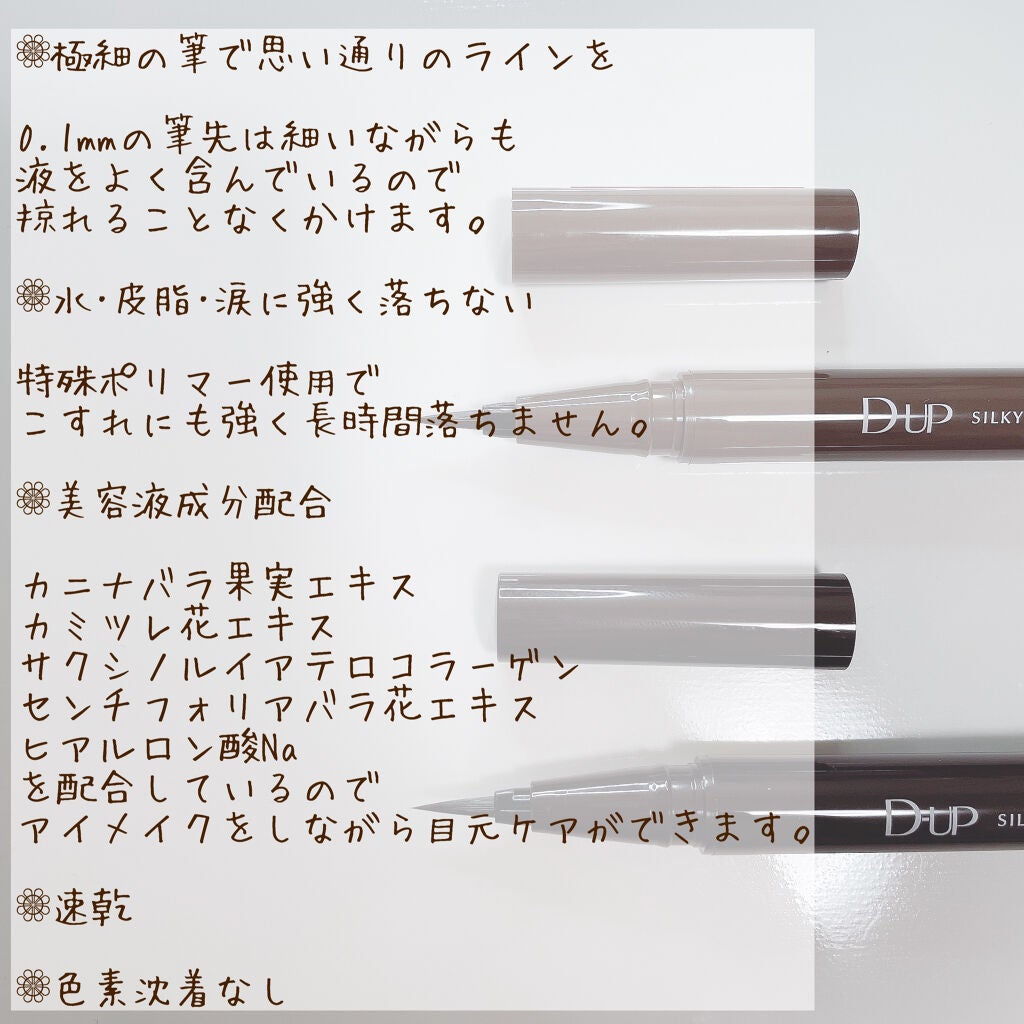 極細の筆で思い通りのラインを
0.1mmの筆先は細いながらも
液をよく含んでいるので
掠れることなくかけます。
水・皮脂・涙に強く落ちない
特殊ポリマー使用で
こすれにも強く長時間落ちません。
D-UP SILKY
美容液成分配合
カニナバラ果実エキス
カミツレ花エキス
サクシノルイアテロコラーゲン
センチフォリアバラ花エキス
ヒアルロン酸Na
を配合しているので
アイメイクをしながら目元ケアができます。
D-UP SIL
速乾
色素沈着なし